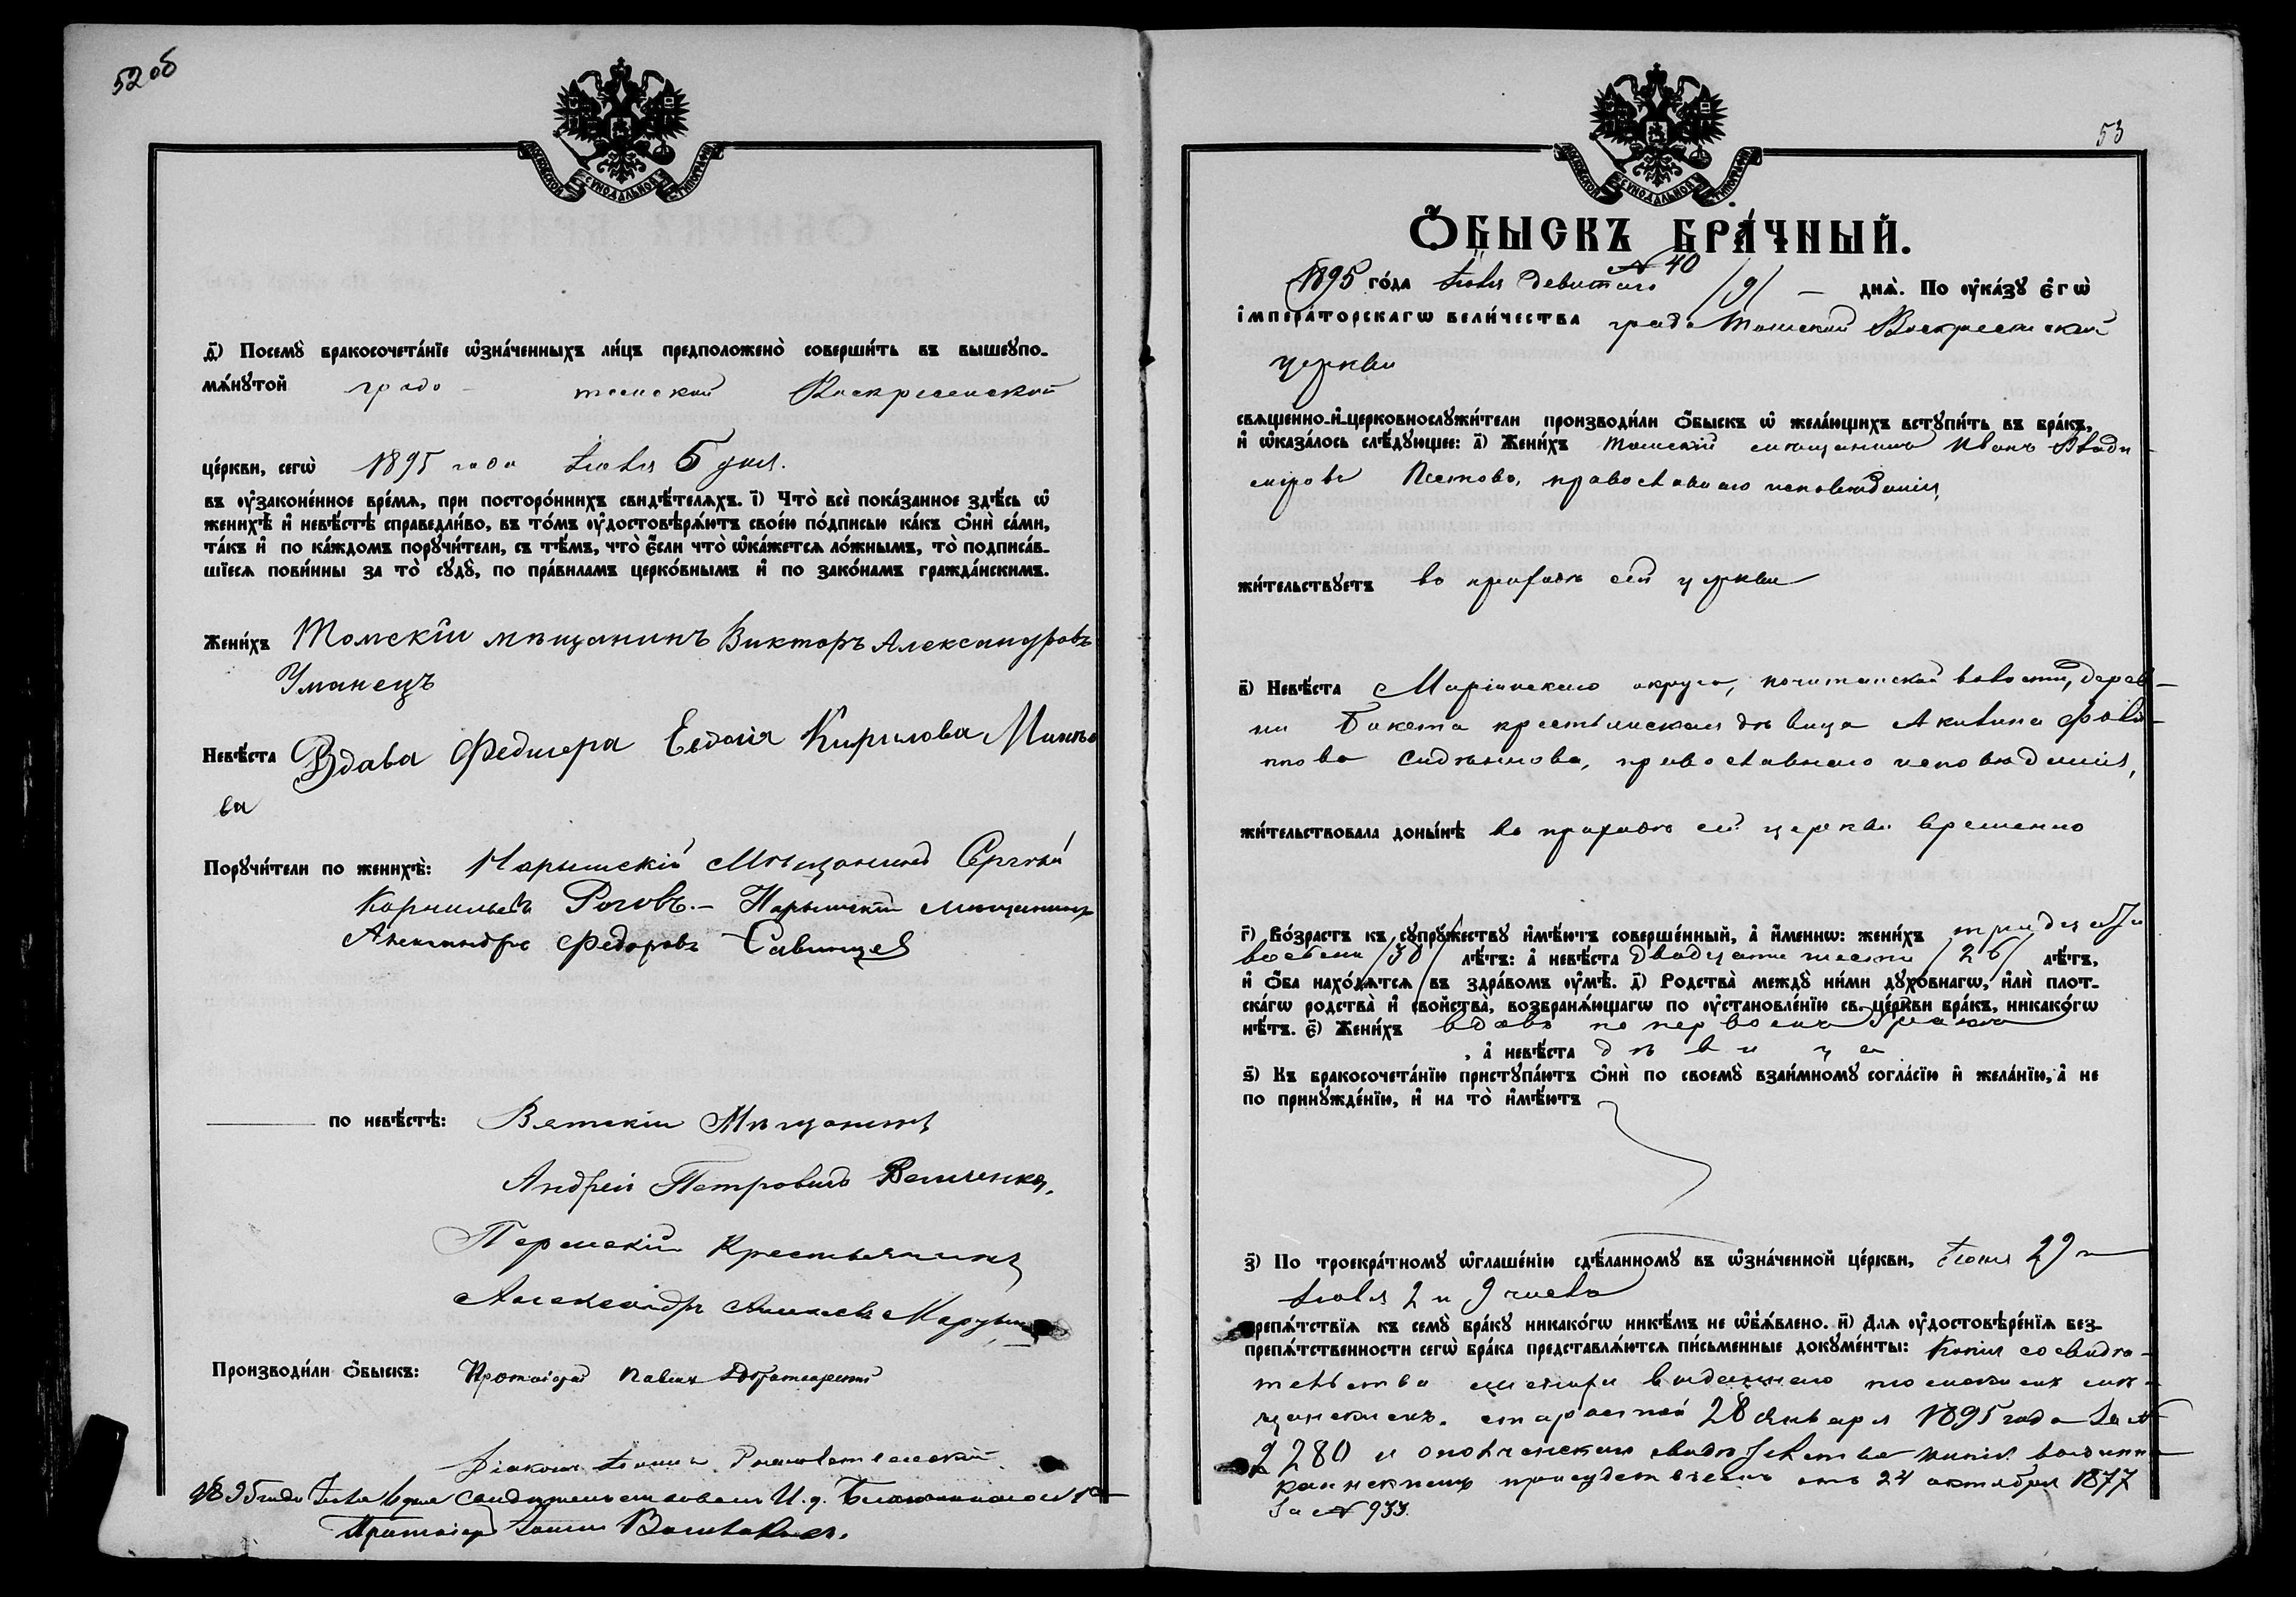 52 об
МОСКОВСКОЙ СѴНОДАЛЬНОЙ ТИПОГРАФІИ
д҃і) Посемꙋ̀ бракосочета́нїе ѡ҆зна́ченныхъ ли́цъ предположено̀ соверши́ть въ вышеꙋпо-
мѧ́нꙋтой градо - томской Воскресенской
це́ркви, сегѡ̀ 1895 года Іюля 5 дня.
въ ᲂу҆законе́нное вре́мѧ, при посторо́ннихъ свидѣ́телѧхъ. і҃) Что̀ всѐ пока́занное здѣ́сь ѡ҆
женихѣ̀ и҆ невѣ́стѣ справедли́во, въ то́мъ ᲂу҆достовѣрѧ́ютъ свое́ю по́дписью ка́къ ѻ҆нѝ са́ми,
та́къ и҆ по ка́ждомъ порꙋчи́тели, съ тѣ́мъ, что̀ є҆́сли что̀ ѡ҆ка́жетсѧ ло́жнымъ, то̀ подписа́в-
шїесѧ пови́нны за то̀ сꙋдꙋ̀, по пра́виламъ церко́внымъ и҆ по зако́намъ гражда́нскимъ.
Жени́хъ Томскій мѣщанинъ Викторъ Александровъ
Уманецъ
Невѣ́ста Вдова Федшера Евдокія Кирилова Минѣе
ва
Порꙋчи́тели по женихѣ̀: Нарымскій Мѣщанинъ Сергѣй
Корнильевъ Роговъ. — Нарымскій мѣщанинъ
Александръ Федоровъ Савинцев
по невѣ́стѣ: Вятскій Мѣщанинъ
Андрей Петровичъ
Пермскій Крестьянинъ
Александръ
Производи́ли ѻ҆́быскъ: Протоіерей Павелъ
Діаконъ Іоаннъ Рождественскій.
1895 года Іюля 6 дня свидѣтельствовалъ И. д. Благочиннаго № 1го
Протоіерей Іоаннъ
53
МОСКОВСКОЙ СѴНОДАЛЬНОЙ ТИПОГРАФІИ
Ѻ҆́БЫСКЪ БРА́ЧНЫЙ.
№ 40
1895 го́да Іюля девятаго /9/ — днѧ̀. По ᲂу҆ка́зꙋ є҆гѡ̀
і҆мпера́торскагѡ вели́чества градо Томской Воскресенской
церкви
свѧще́нно-и҆-церковнослꙋжи́тели производи́ли ѻ҆́быскъ ѡ҆ жела́ющихъ встꙋпи́ть въ бра́къ,
и҆ ѡ҆каза́лось слѣ́дꙋющее: а҃) Жени́хъ томскій мѣщанинъ Иванъ Влади-
міровъ Пестовъ, православнаго исповѣданія,
жи́тельствꙋетъ въ приходѣ сей церкви
в҃) Невѣ́ста Маріинскаго округа, почитанской волости, дерев-
ни Бокета крестьянская дѣвица Акилина Филип-
пова православнаго исповѣданія,
жи́тельствовала доны́нѣ въ приходѣ сей церкви временно
г҃) Во́зрастъ къ сꙋпрꙋ́жествꙋ и҆мѣ́ютъ соверше́нный, а҆ и҆́менно: жени́хъ тридцати
восьми /38/ лѣ́тъ: а҆ невѣ́ста двадцати шести /26/ лѣ́тъ,
и҆ ѻ҆́ба нахо́дѧтсѧ въ здра́вомъ ᲂу҆мѣ̀. д҃) Родства̀ междꙋ̀ ни́ми дꙋхо́внагѡ, и҆лѝ плот-
ска́гѡ родства̀ и҆ свойства̀, возбранѧ́ющагѡ по ᲂу҆становле́нїю св. це́ркви бра́къ, никако́гѡ
нѣ́тъ. є҃) Жени́хъ вдовъ по первомъ бракѣ
, а҆ невѣ́ста дѣвица
ѕ҃) Къ бракосочета́нїю пристꙋпа́ютъ ѻ҆нѝ по своемꙋ̀ взаи́мномꙋ согла́сїю и҆ жела́нїю, а҆ не
по принꙋжде́нїю, и҆ на то̀ и҆мѣ́ютъ
з҃) По троекра́тномꙋ ѡ҆глаше́нїю сдѣ́ланномꙋ въ ѡ҆зна́ченной це́ркви, Іюня 29 и
Іюля 2 и 9 числа
препѧ́тствїѧ къ семꙋ̀ бра́кꙋ никако́гѡ никѣ́мъ не ѡ҆б̾ѧ́влено. и҃) Длѧ ᲂу҆достовѣре́нїѧ без-
препѧ́тственности сегѡ̀ бра́ка представлѧ́ютсѧ пи́сьменные докꙋме́нты: Копія со свидѣ-
тельства выданнаго томскимъ мѣ-
щанскимъ старостой 28 Января 1895 года за №
2280 и ополченскаго свидѣтельства воинск
присутствіемъ отъ 24 октября 1877
за № 933.